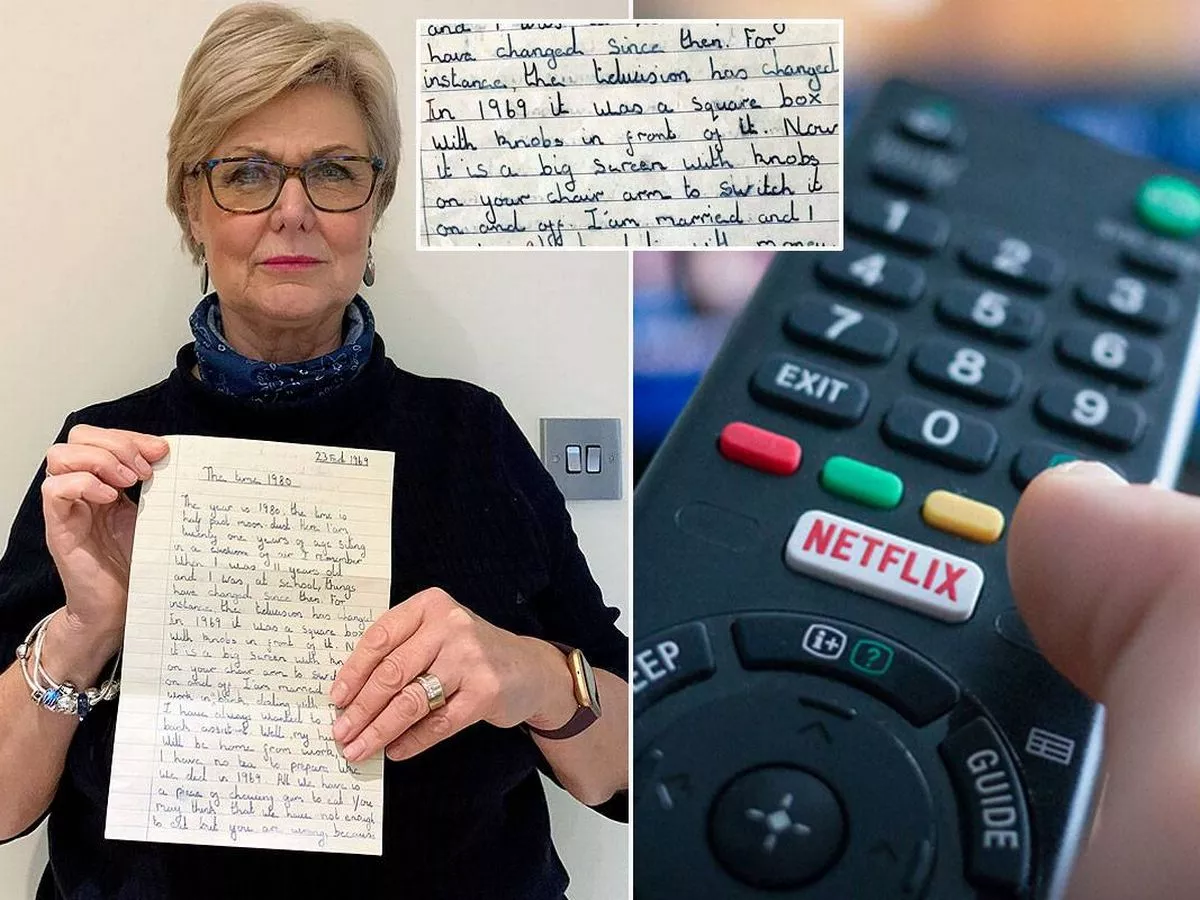 23 Feb 1969
The time 1980
The year is 1980, the time is
half past moon-dust. Here I'am
twenty one years of age siting
in a cushion of air. I remember
when I was 11 years old
and I was at school, things
have changed since then. For
instance, the television has changed
In 1969 it was a square box
with knobs in front of it. Now
it is a big screen with kn
on your chair arm to switch
on and off. I'am married
work in bank dealing with
I have always wanted to
bank
will be home from work,
I have no tea to prepare like
we did in 1969. All we have is
a piece of chewing gum to eat. You
may think that we have not enough
to eat but you are wrong because
and I was
have changed since then. For
instance, the television has changed
In 1969 it was a square box
with knobs in front of it. Now
it is a big screen with knobs
on your chair arm to switch it
on and off. I'am married and I
1 2 3
4 5 6
7 8 9
EXIT 0
NETFLIX
EEP
i+ ?
GUIDE